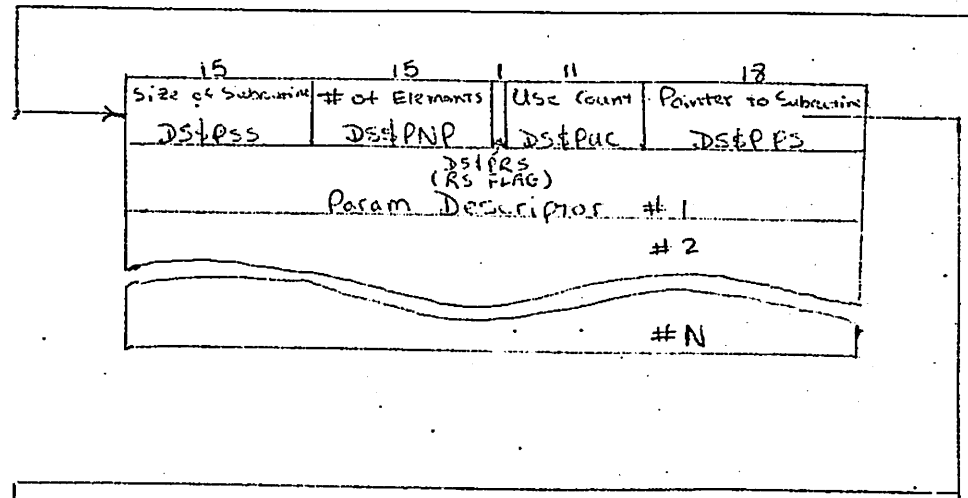 15 15 1 11 18
Size of Subroutine # of Elements Use Count Pointer to Subroutine
DS$PSS DS$PNP DS$PUC DS$PPS
DS$PRS
(RS FLAG)
Param Descriptor # 1
# 2
# N